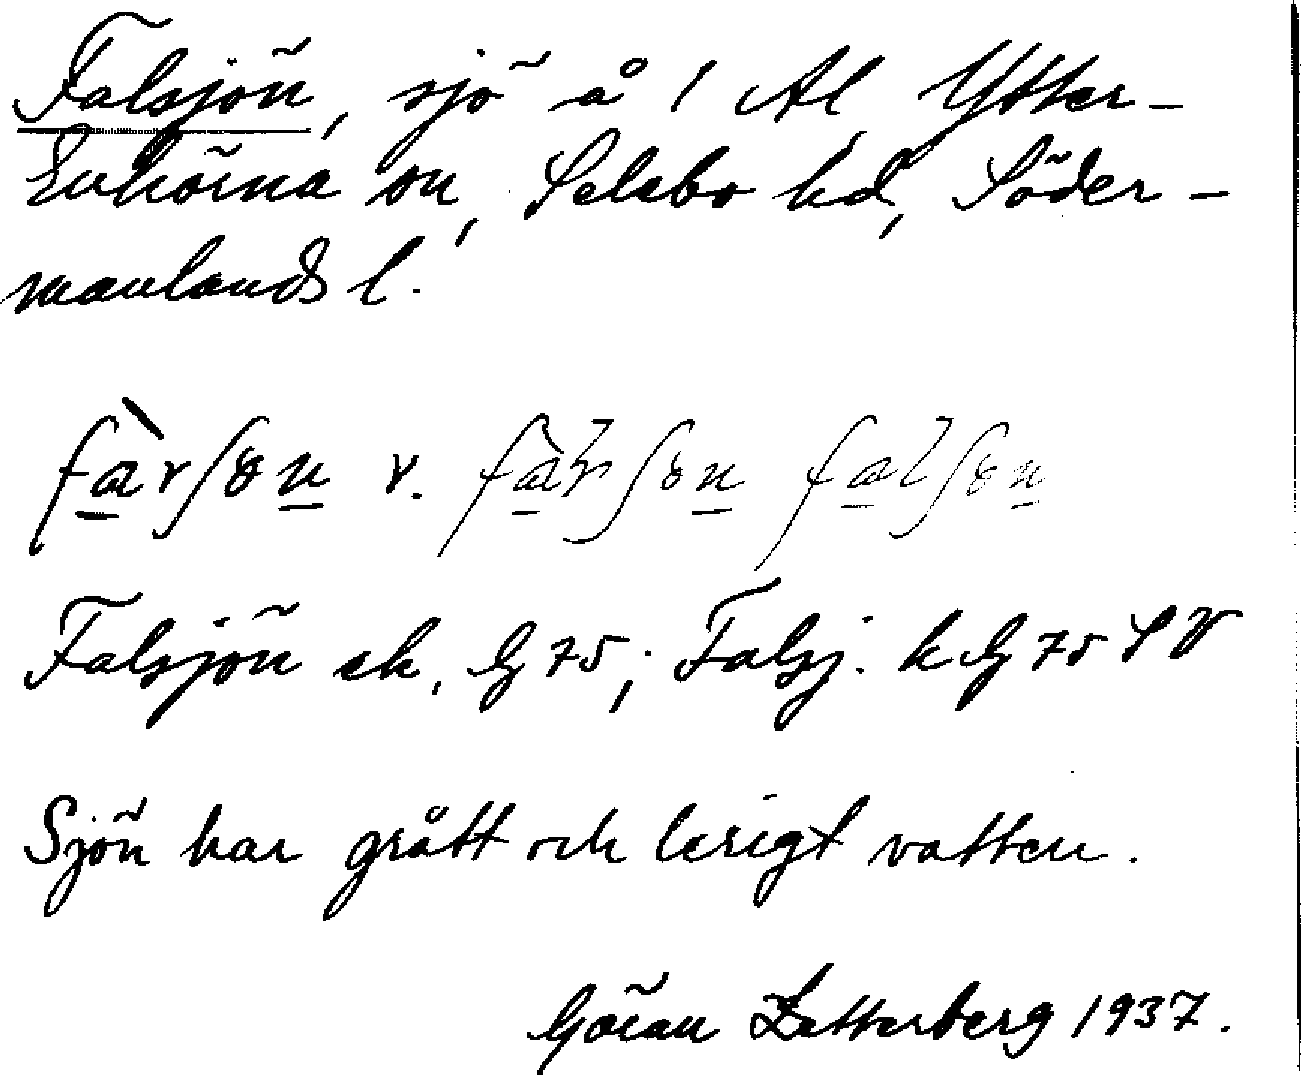 Falsjön, sjö å 1 Al, Ytter-
Enhörna sn, Selebo hd, Söder-
manlands l.
v.
Falsjön ek. G 75; Falsj. k G 75 SV
Sjön har grått och lerigt vatten.
Göran Zetterberg 1937.